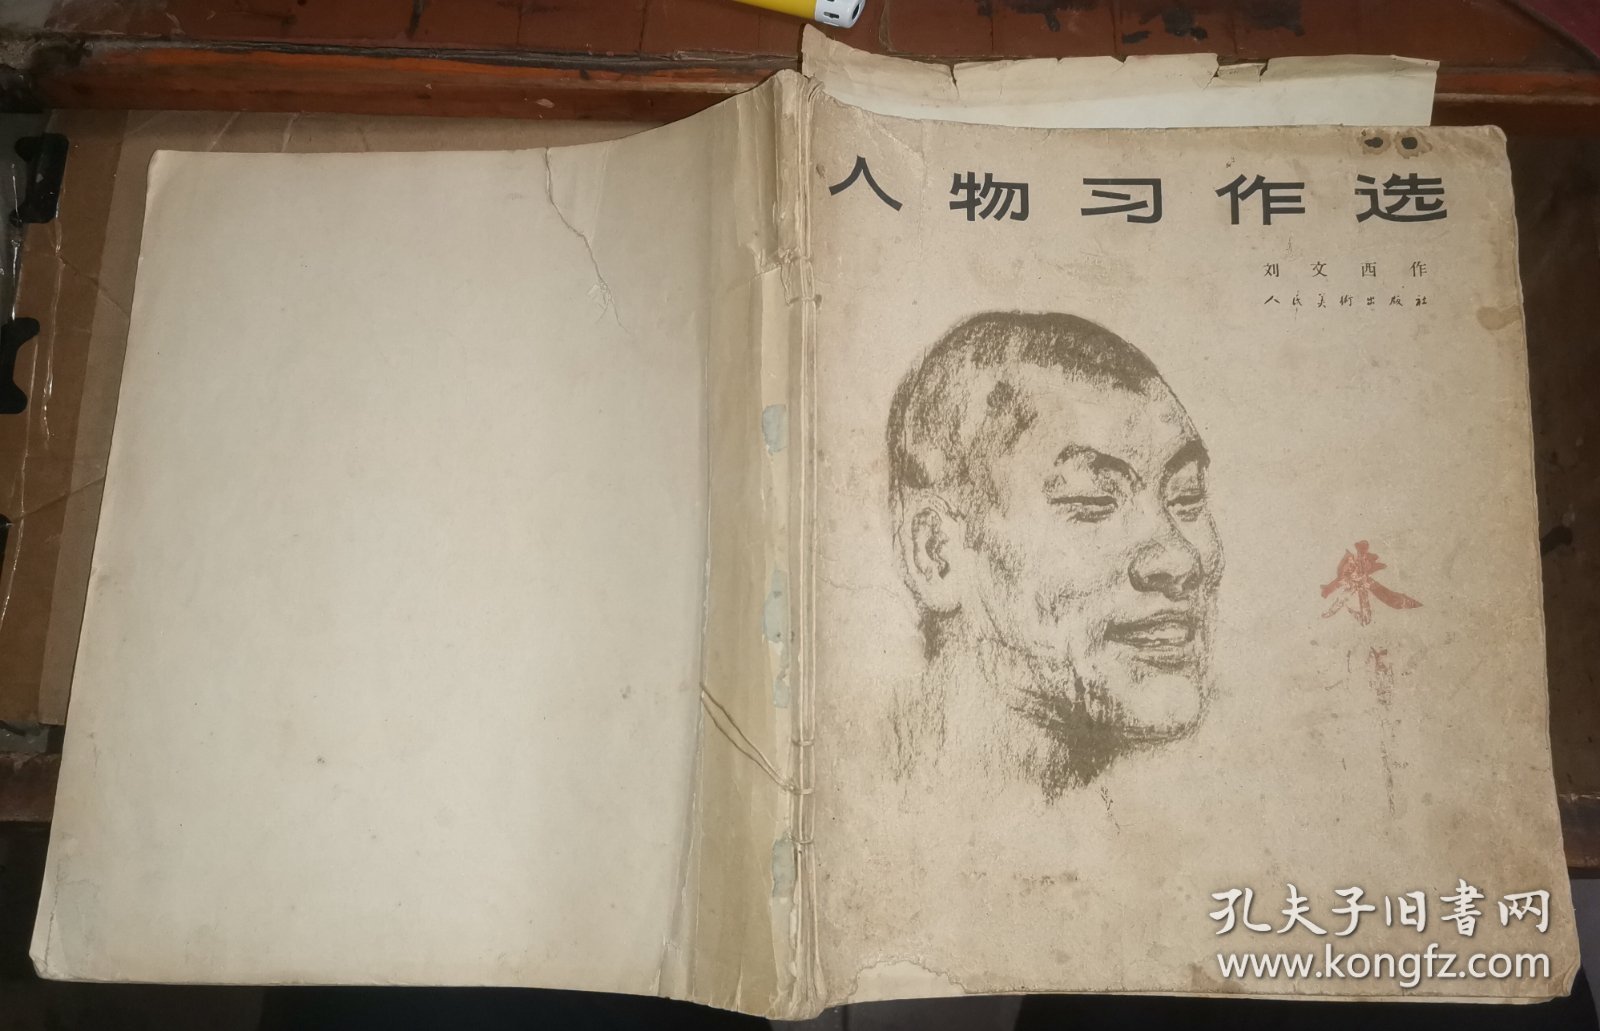 人物习作选
刘文西作
人民美術出版社
朱
孔夫子旧書网
www.kongfz.com